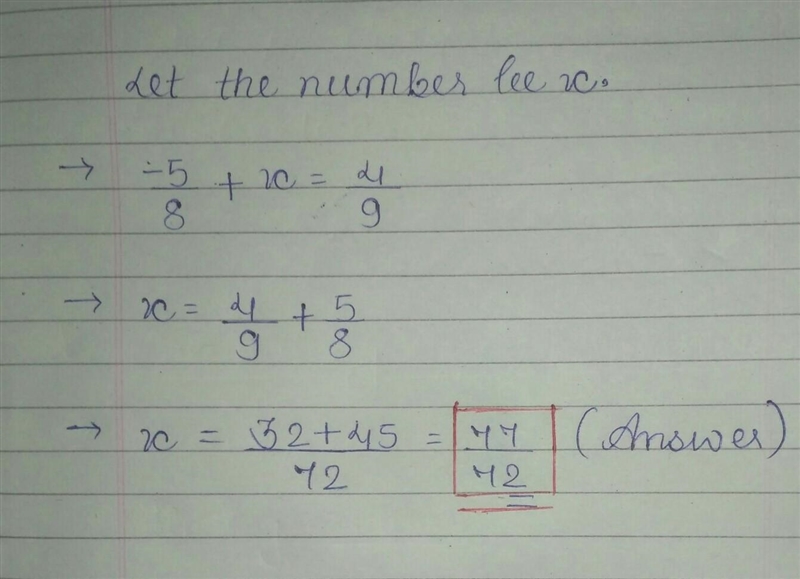 Let the number be x.
→ -5/8 + x = 4/9
→ x = 4/9 + 5/8
→ x = 32+45/72 = 77/72 (Answer)